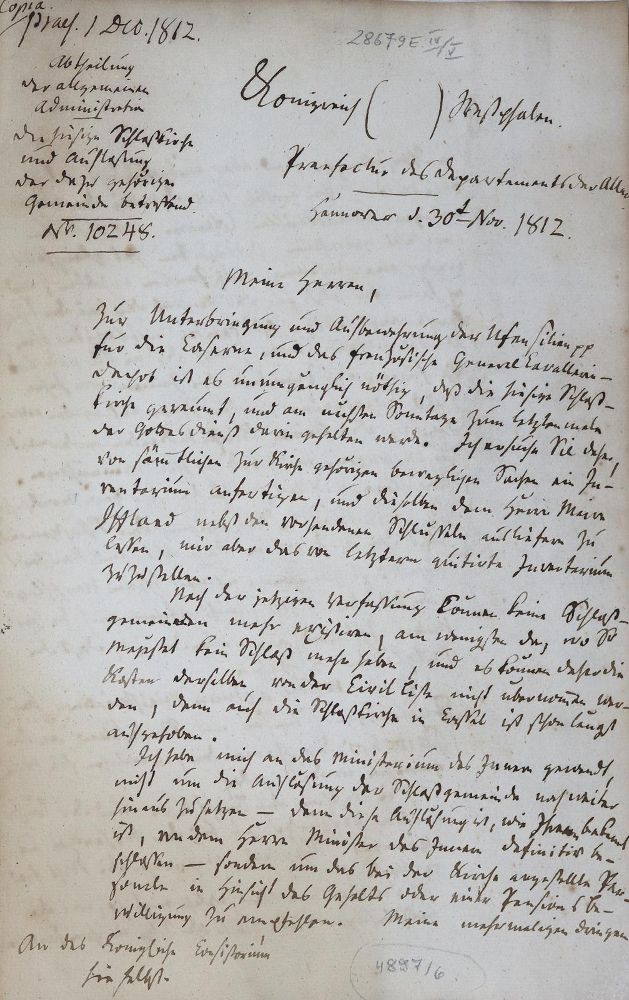 Copia.
praes. 1 Dec. 1812.
28679E IV/V
Abtheilung
der allgemeinen
Administration
die hiesige Schloßkirche
und Auflösung
der dazu gehörigen
Gemeinde betreffend.
Nr. 10248.
Königreich ( ) Westphalen.
Praefectur des Departements der Aller
Hannover d. 30t Nov. 1812.
Meine Herren,
Zur Unterbringung und Aufbewahrung der Utensilien pp
für die Caserne, und das französische General Cavallerie-
Depot ist es unumgänglich nöthig, daß die hiesige Schloß-
kirche geräumt, und am nächsten Sonntage zum letzten male
der Gottesdienst darin gehalten werde. Ich ersuche Sie daher,
von sämtlichen zur Kirche gehörigen beweglichen Sachen ein In-
ventarium anfertigen, und dieselben dem Herrn Maire
Iffland nebst den vorhandenen Schlüsseln ausliefern zu
lassen, mir aber das von letzterm quitirte Inventarium
zuzustellen.
Nach der jetzigen Verfassung können keine Schloß-
gemeinden mehr existiren, am wenigsten da, wo Se
Majestät kein Schloß mehr haben, und es können daher die
Kosten derselben von der Civil Liste nicht übernommen wer-
den, denn auch die Schloßkirche in Cassel ist schon längst
aufgehoben.
Ich habe mich an das Ministerium des Innern gewandt,
nicht um die Auflösung der Schloßgemeinde noch weiter
hinaus zu setzen – denn diese Auflösung ist, wie Ihnen bekannt
ist, von dem Herrn Minister des Innern definitiv be-
schlossen – sondern um das bei der Kirche angestellte Per-
sonale in Hinsicht des Gehalts oder einer Pensions Be-
willigung zu empfehlen. Meine mehrmaligen dringen
An das Königliche Consistorium
hieselbst.
4897/6